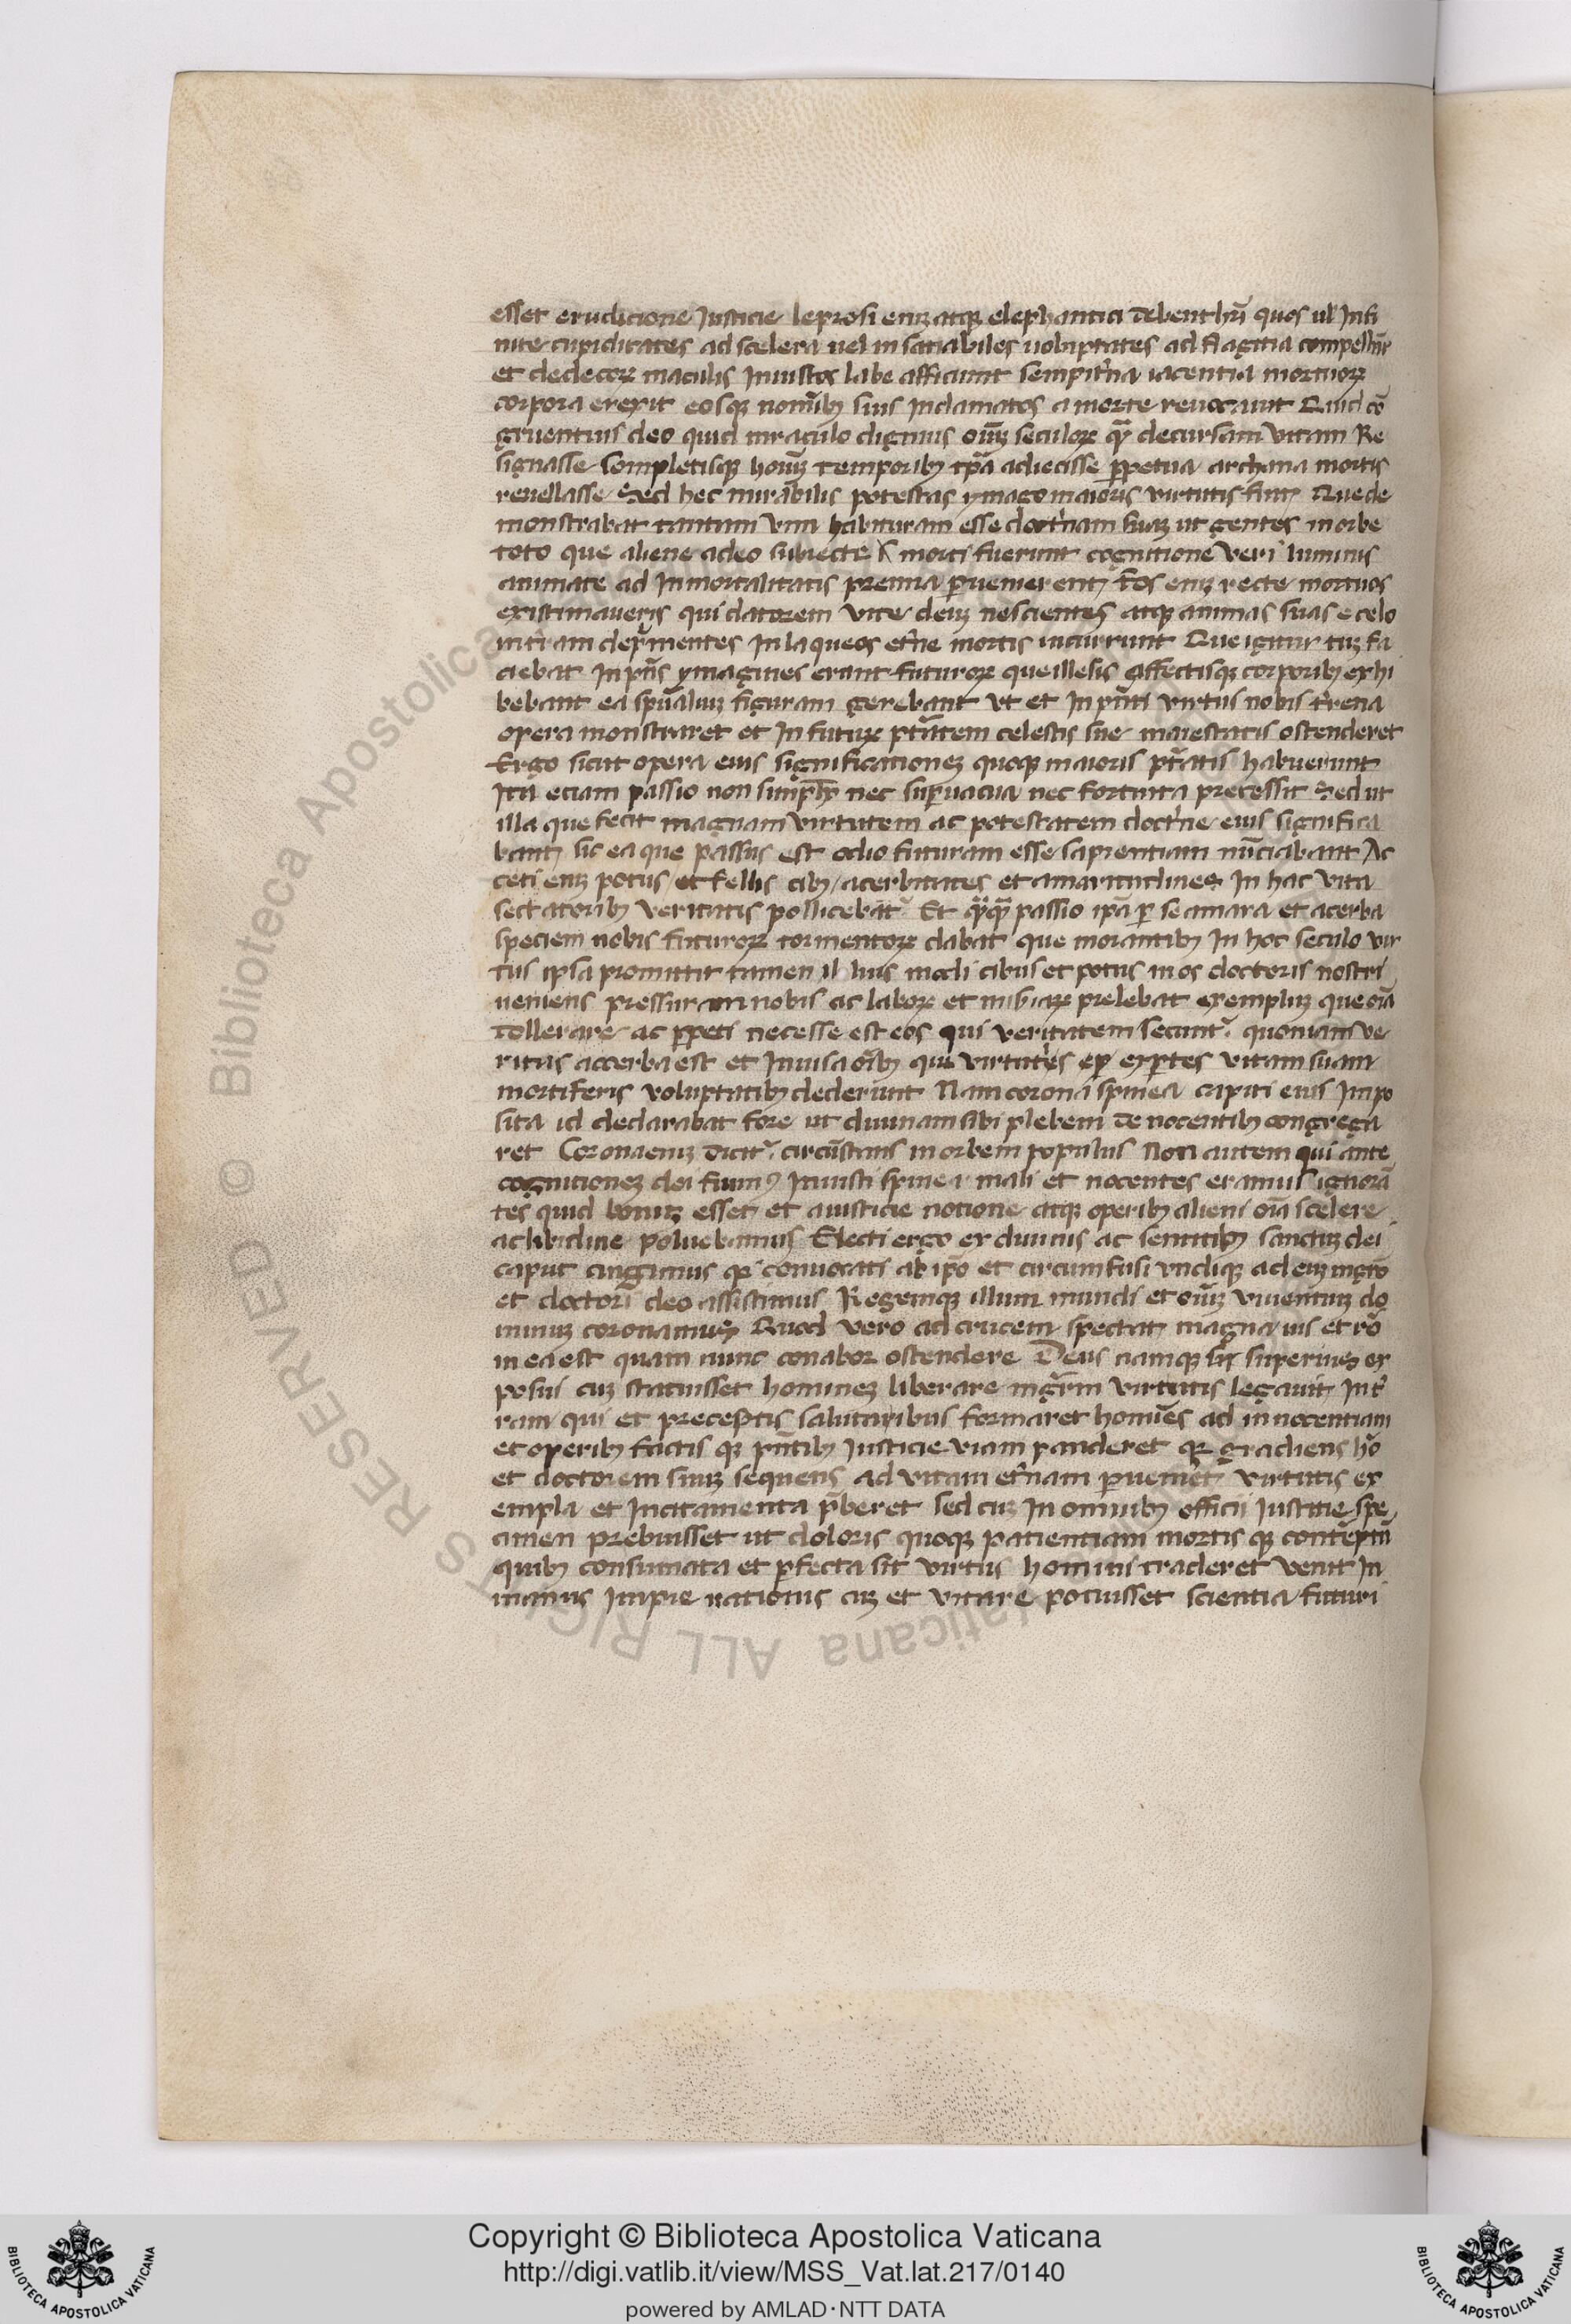 esset erudicione Justicie leprosi enꝫ atqꝫ elephantici debent hr̄i quos ul Infi
nite cupiditates ad scelera uel insatiabiles uoluptates ad flagitia compellūt
et dedecorꝝ maculis Inuistos labe afficiunt sempit̉na iacentia mortuorꝝ
corpora erexit eosqꝫ nom̄ibꝫ suis Inclamatos a morte reuocauit Quid cō
gruentius deo quid miraculo dignius oīuꝫ seculorꝝ qᷓ decursam vitam Re
signasse Completisqꝫ hoīuꝫ temporibꝫ tꝑa adiecisse ꝑpetua archana mortis
reuellasse Sed hec mirabilis potestas ymago maioris virtutis fuit Que de
monstrabat tantam vim habituram esse doct̉nam suaꝫ ut gentes in orbe
toto que aliene adeo subiecte morti fuerunt cognitione veri luminis
animate ad Inmortalitatis premia ꝑuenierent Eos enꝫ recte mortuos
existimaueris qui datorem vite deuꝫ nescientes atqꝫ animas suas e celo
in t̉ram dep̉mentes In laqueos et̉ne mortis incurrunt Que igitur tuꝫ fa
ciebat In pn̄s ymagines erant futurorꝝ que illesis affectisqꝫ corporibꝫ exhi
bebant ea spūaliuꝫ figuram gerebant vt et In pn̄ti virtus nobis t̉rena
opera monstraret et In futurꝝ ptātem celestis sue maiestatis ostenderet
Ergo sicut opera eius significationeꝫ quoqꝫ maioris ptātis habuerunt
Ita eciam passio non simpl̄r nec suꝑuacua nec fortuita precessit Sed ut
illa que fecit magnam virtutem ac potestatem doct̉ne eius significa
bant sic ea que passus est odio futuram esse sapientiam nūciabant Ac
ceti enꝫ potus et fellis cibꝫ acerbitates et amaritudines In hac vita
sectatoribꝫ veritatis pollicebat᷑ Et qᷓqᷓ passio ipā ꝑ se amara et acerba
speciem nobis futurorꝝ tormentorꝝ dabat que morantibꝫ In hoc seculo vir
tus ipsa promittit tamen il huis modi cibus et potus in os doctoris nostri
ueniens pressuram nobis ac laborꝝ et miseriarꝝ prelebat exempluꝫ que oīa
tollerare ac ꝑpeti necesse est eos qui veritatem secunt᷑ quoniam ve
ritas accerba est et Inuisa oībꝫ qui virtutes exꝑtes vitam suam
mortiferis voluptatibꝫ dederunt Nam corona spinea capiti eius Impo
sita id declarabat fore ut diuinam sibi plebem de nocentibꝫ congrega
ret Corona enꝫ dicit᷑ circūstans in orbem populus Non autem qui ante
cognitioneꝫ dei fuimꝰ Iniusti spinei mali et nocentes eramus ignorā
tes quid bonuꝫ esset et a iusticie notione atqꝫ operibꝫ alieni oīa scelere
ac libidine poluebamus Electi ergo ex dumis ac sentibꝫ sanctuꝫ dei
caput cingimus qꝫ conuocati ab ipō et circumfusi vndiqꝫ ad euꝫ mgrō
et doctori deo assistimus Regemqꝫ illum mundi et oīuꝫ viuentiuꝫ do
minuꝫ coronamus Quod vero ad crucem spectat magna uis et rō
in ea est quam nunc conabor ostendere Deus namqꝫ sic̄ superius ex
posui cuꝫ statuisset homineꝫ liberare mgr̄m virtutis legauit In t̉
ram qui et preceptis salutaribus formaret homīes ad innocentiam
et operibꝫ factis qꝫ pn̄tibꝫ Iusticie viam panderet qꝫ gradiens hō
et doctorem suuꝫ sequens ad vitam et̉nam ꝑueniret virtutis ex
empla et Incitamenta p̄beret sed cuꝫ In omnibꝫ officii Iustitie spe
cimen prebuisset ut doloris quoqꝫ patientiam mortis qꝫ contēptū
quibꝫ consumata et ꝑfecta sit virtus homini traderet venit In
manus Impie nationis cuꝫ et vitare potuisset scientia futuri
Copyright © Biblioteca Apostolica Vaticana
http://digi.vatlib.it/view/MSS_Vat.lat.217/0140
powered by AMLAD·NTT DATA